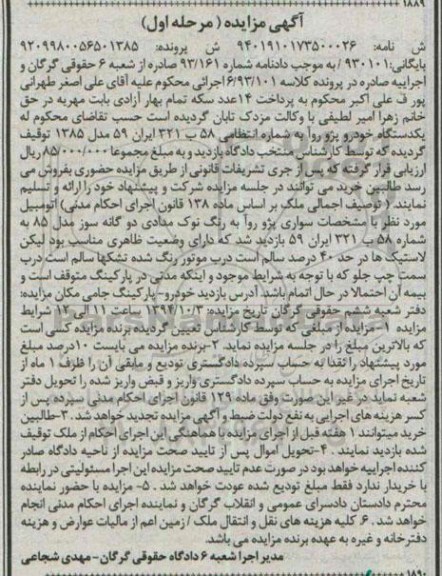 ۱۸۸۹
آگهی مزایده (مرحله اول)
ش نامه: ۹۴۰۱۹۱۰۱۷۳۵۰۰۰۲۶ ش پرونده: ۹۲۰۹۹۸۰۰۵۶۵۰۱۳۸۵
بایگانی: ۹۳۰۱۰۱ / به موجب دادنامه شماره ۹۳/۱۶۱ صادره از شعبه ۶ حقوقی گرگان و
اجراییه صادره در پرونده کلاسه ۶/۹۳/۱۰۱ اجرائی محکوم علیه آقای علی اصغر طهرانی
پور ف علی اکبر محکوم به پرداخت ۱۴عدد سکه تمام بهار آزادی بابت مهریه در حق
خانم زهرا امیر لطیفی با وکالت مزدک تابان گردیده است حسب تقاضای محکوم له
یکدستگاه خودرو پژو روآ به شماره انتظامی ۵۸ ب ۳۲۱ ایران ۵۹ مدل ۱۳۸۵ توقیف
گردیده که توسط کارشناس منتخب دادگاه بازدید و به مبلغ مجموعا ۸۵/۰۰۰/۰۰۰ ریال
ارزیابی قرار گرفته که پس از جری تشریفات قانونی از طریق مزایده حضوری بفروش می
رسد طالبین خرید می توانند در جلسه مزایده شرکت و پیشنهاد خود را ارائه و تسلیم
نمایند. (توصیف اجمالی ملک بر اساس ماده ۱۳۸ قانون اجرای احکام مدنی) اتومبیل
مورد نظر با مشخصات سواری پژو روآ به رنگ نوک مدادی دو گانه سوز مدل ۸۵ به
شماره ۵۸ ب ۳۲۱ ایران ۵۹ بازدید شد که دارای وضعیت ظاهری مناسب بود لیکن
لاستیک ها در حد ۴۰ درصد سالم است درب موتور رنگ شده تشکها سالم است درب
سمت چپ جلو که با توجه به شرایط موجود و اینکه مدتی در پارکینگ متوقف است و
بیمه آن احتمالا در حال اتمام باشد. آدرس بازدید خودرو- پارکینگ جامی مکان مزایده:
دفتر شعبه ششم حقوقی گرگان تاریخ مزایده: ۱۳۹۴/۱۰/۲ ساعت ۱۱ الی ۱۲ شرایط
مزایده ۱- مزایده از مبلغی که توسط کارشناس تعیین گردیده برنده مزایده کسی است
که بالاترین مبلغ را در جلسه مزایده نماید. ۲-برنده مزایده می بایست ۱۰درصد مبلغ
مورد پیشنهاد را نقدا به حساب سپرده دادگستری تودیع و مابقی آن را ظرف ۱ ماه از
تاریخ اجرای مزایده به حساب سپرده دادگستری واریز و قبض واریز شده را تحویل دفتر
شعبه نماید در غیر این صورت وفق ماده ۱۲۹ قانون اجرای احکام مدنی سپرده پس از
کسر هزینه های اجرایی به نفع دولت ضبط و آگهی مزایده تجدید خواهد شد. ۳-طالبین
خرید میتوانند ۱ هفته قبل از اجرای مزایده با هماهنگی این اجرای احکام از ملک توقیف
شده بازدید نمایند. ۴-تحویل اموال پس از تایید صحت مزایده از ناحیه دادگاه صادر
کننده اجراییه خواهد بود در صورت عدم تایید صحت مزایده این اجرا مسئولیتی در رابطه
با خریدار ندارد فقط مبلغ تودیع شده عودت خواهد شد. ۵- مزایده با حضور نماینده
محترم دادستان دادسرای عمومی و انقلاب گرگان و نماینده اجرای احکام مدنی انجام
خواهد شد. ۶ کلیه هزینه های نقل و انتقال ملک / زمین اعم از مالیات عوارض و هزینه
دفترخانه و غیره به عهده برنده مزایده می باشد.
مدیر اجرا شعبه ۶ دادگاه حقوقی گرگان-مهدی شجاعی
۱۸۹۰